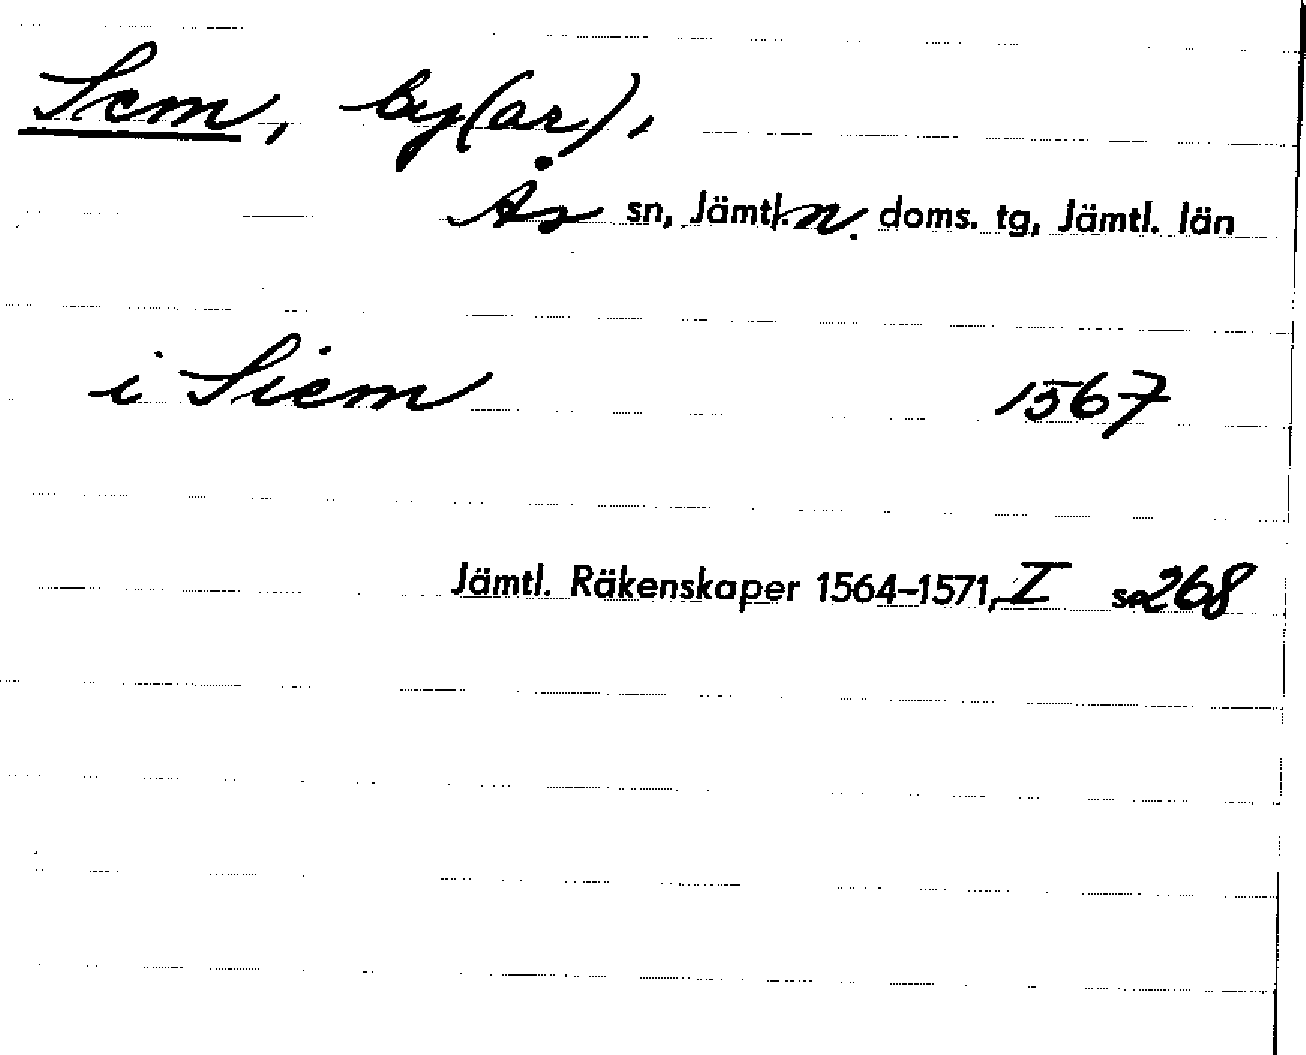 Sem, by(ar),
Ås sn, Jämtl. n. doms. tg, Jämtl. län
i Siem 1567
Jämtl. Räkenskaper 1564–1571, I s. 268